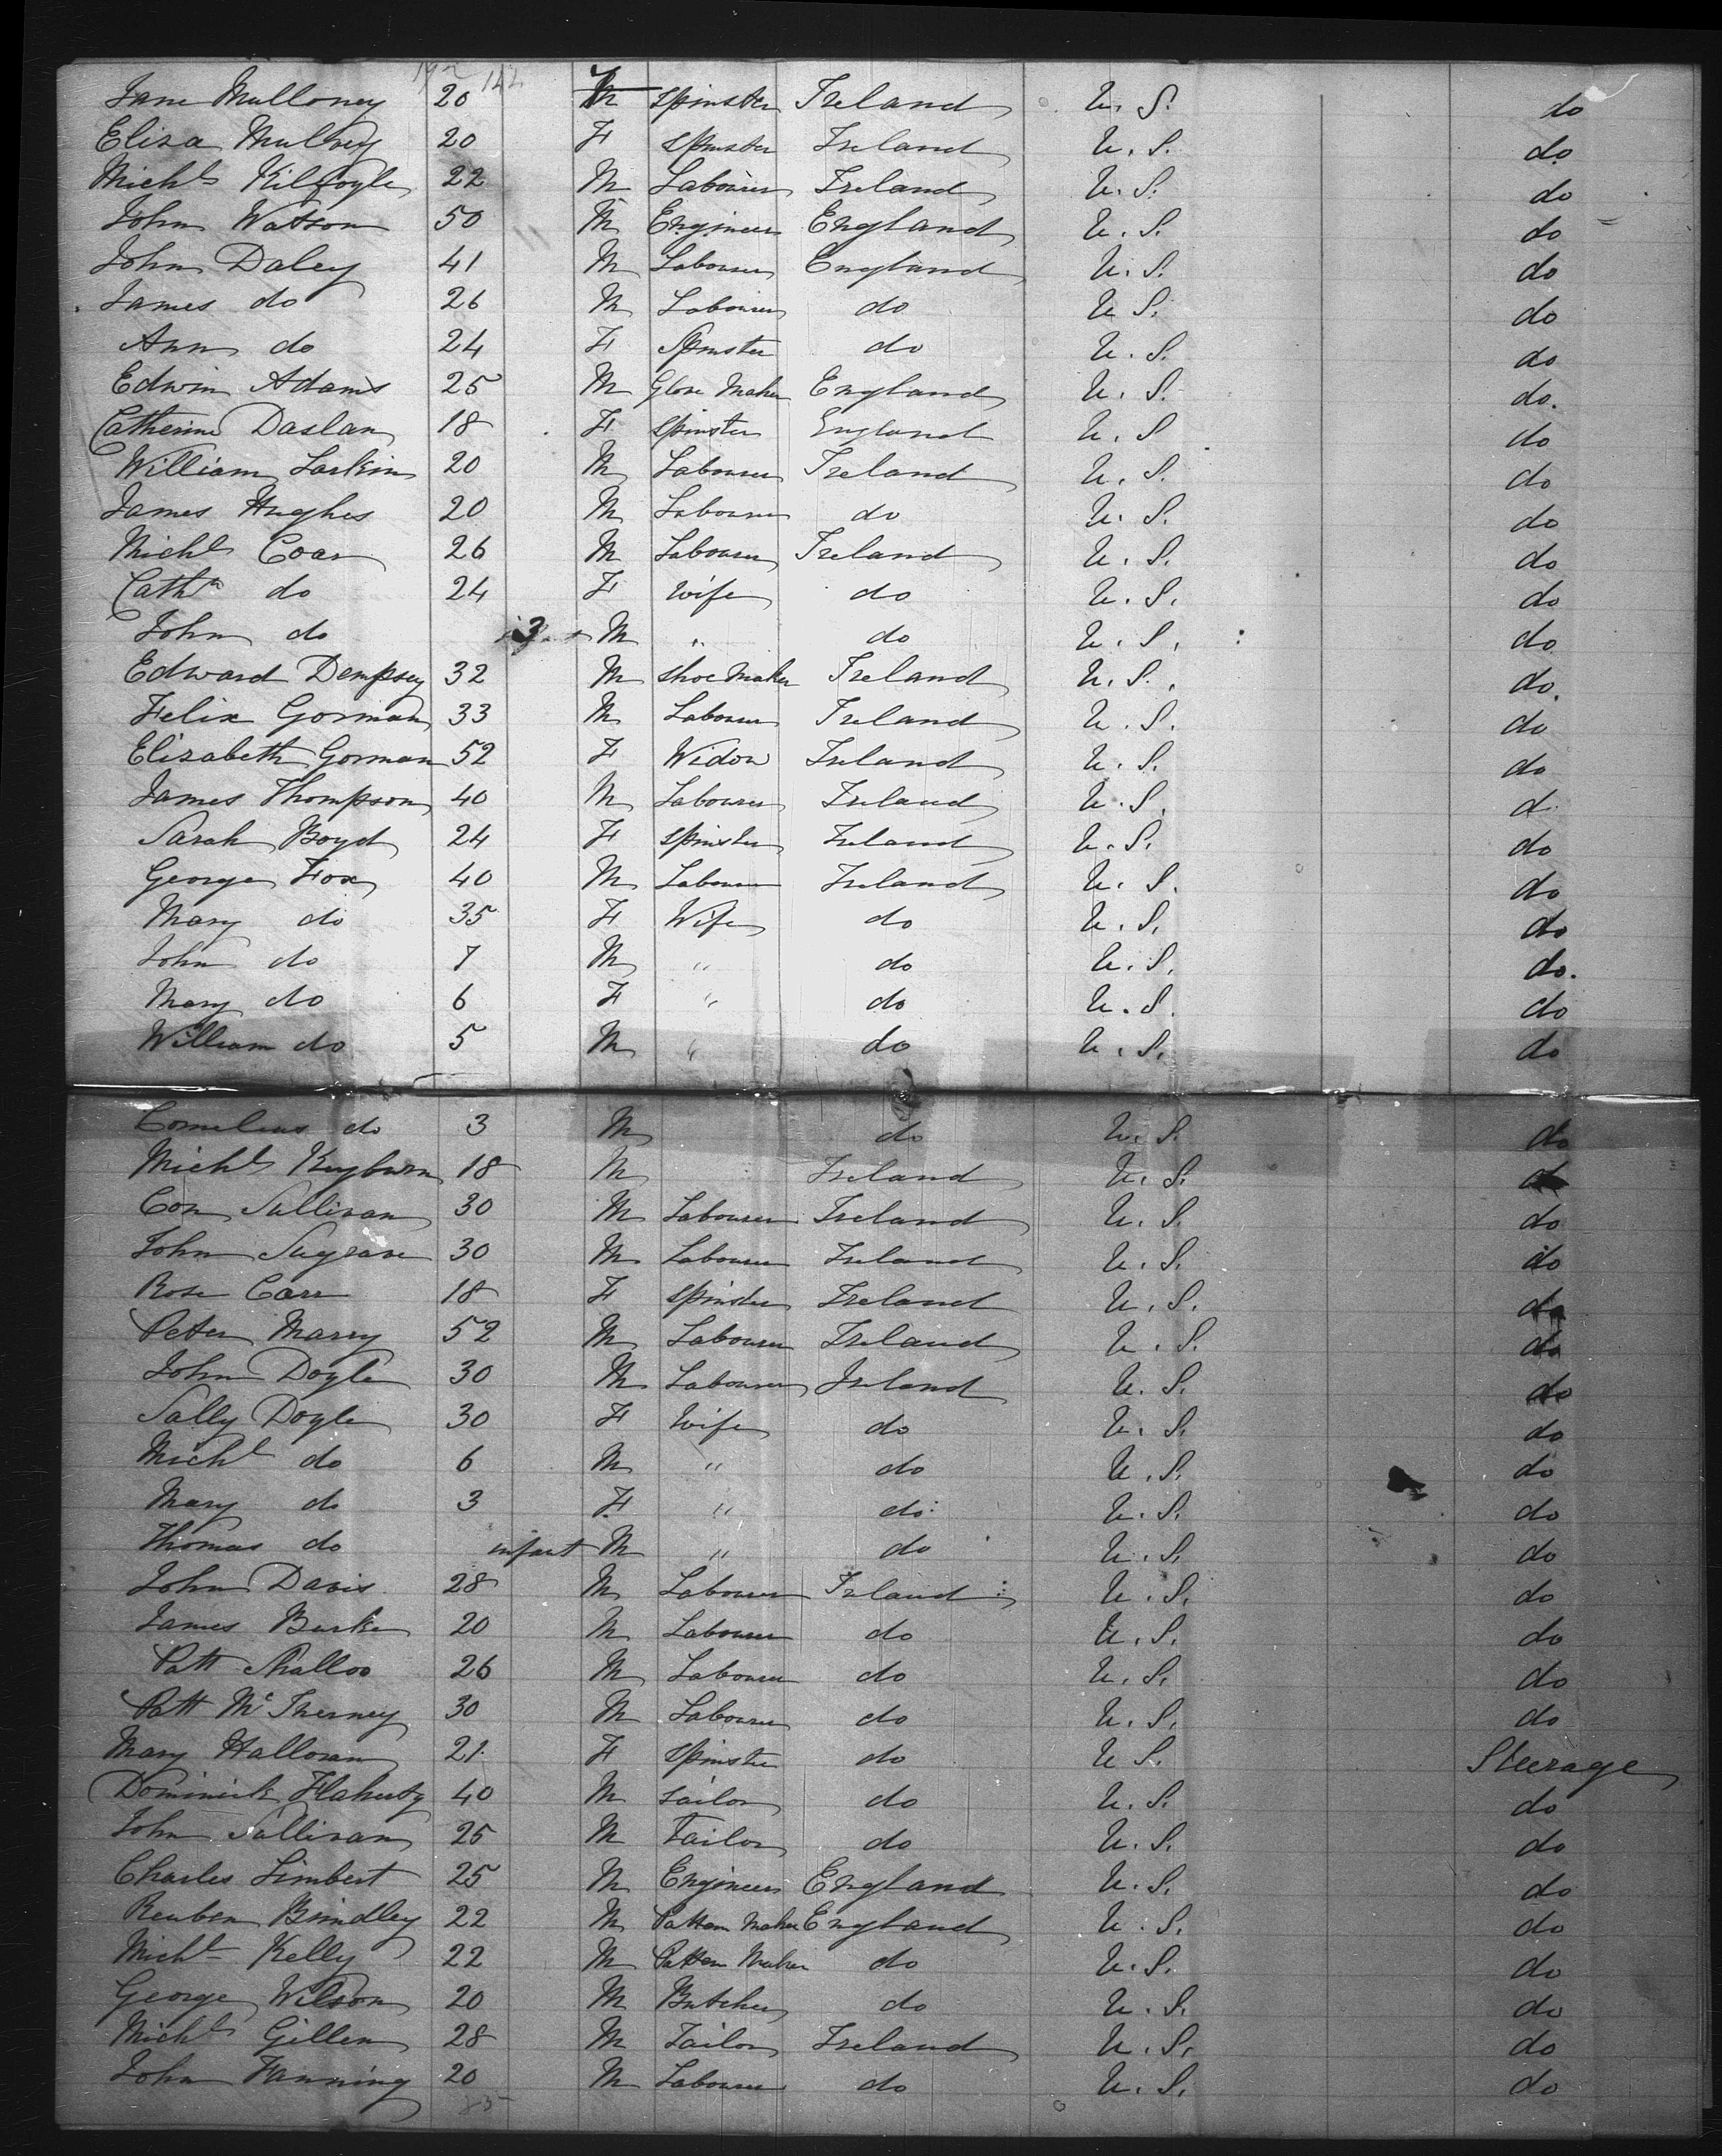 Jane Mulloney 20 F Spinster Ireland U. S. do
Eliza Mulvey 20 F Spinster Ireland U. S. do
Michl Kilfoyle 22 M Labourer Ireland U. S. do
John Watson 50 M Engineer England U. S. do
John Daley 41 M Labourer England U. S. do
James do 26 M Labourer do U S. do
Ann do 24 F Spinster do U. S. do
Edwin Adams 25 M Glove Maker England U. S. do.
Catherine Daslan 18 F Spinster England U. S do
William Larkin 20 M Labourer Ireland U. S. do
James Hughes 20 M Labourer do U. S. do
Michl Coar 26 M Labourer Ireland U. S. do
Cathn do 24 F Wife do U. S. do
John do 3 M " do U. S. do
Edward Dempsey 32 M Shoe Maker Ireland U. S. do.
Felix Gorman 33 M Labourer Ireland U. S. do
Elizabeth Gorman 52 F Widow Ireland U. S. do
James Thompson 40 M Labourer Ireland U. S. do
Sarah Boyd 24 F Spinster Ireland U. S. do
George Fox 40 M Labourer Ireland U. S. do
Mary do 35 F Wife do U. S. do
John do 7 M " do U. S. do.
Mary do 6 F " do U. S. do
William do 5 M " do U. S. do
Cornelius do 3 M do U. S. do
Michl 18 M Ireland U. S. do
Con Sullivan 30 M Labourer Ireland U. S. do
John Sugrave 30 M Labourer Ireland U. S. do
Rose Carr 18 F Spinster Ireland U. S. do
Peter Marry 52 M Labourer Ireland U. S. do
John Doyle 30 M Labourer Ireland U. S. do
Sally Doyle 30 F Wife do U. S. do
Michl do 6 M " do U. S. do
Mary do 3 F. " do U. S. do
Thomas do infant M " do U. S. do
John Davis 28 M Labourer Ireland U. S. do
James Burke 20 M Labourer do U. S. do
Patt Shalloo 26 M Labourer do U. S. do
Patt McInerney 30 M Labourer do U. S. do
Mary Halloran 21 F Spinster do U S. Steerage
Dominick Flaherty 40 M Sailor do U. S. do
John Sullivan 25 M Tailor do U. S. do
Charles Limbert 25 M Engineer England U. S. do
Reuben Brindley 22 M Pattern Maker England U. S. do
Michl Kelly 22 M Pattern Maker do U. S. do
George Wilson 20 M Butcher do U. S. do
Michl Gillen 28 M Tailor Ireland U. S. do
John Fanning 20 M Labourer do U. S. do